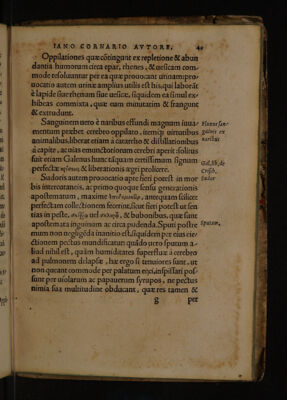 IANO CORNARIO AVTORE. 49
Oppilationes quæ cōtingunt ex repletione & abun
dantia humorum circa epar, rhenes, & uesicam com-
mode resoluuntur per ea quæ prouocant urinam: pro-
uocatio autem urinæ amplius utilis est his, qui laborāt
è lapide siue rhenum siue uesicæ, siquidem ea simul ex-
hibeas commixta, quæ eum minutatim & frangunt
& extrudunt.
Sanguinem uero è naribus effundi magnum iuua-
mentum præbet cerebro oppilato, itemq; uirtutibus
animalibus, liberat etiam à catarrho & distillationibus
à capite, ac uias emunctoriorum cerebri aperit: solitus
fuit etiam Galenus hunc tāquam certissimum signum
perfectæ & liberationis ægri proferre.
Sudoris autem prouocatio apte fieri potest in mor
bis intercutaneis, ac primo quoque sensu generationis
apostematum, maxime antequam scilicet
perfectam collectionem fecerint, sicut fieri potest ut sen
tias in peste, uel & bubonibus, quæ sunt
apostemata inguinum ac circa pudenda. Sputi postre
mum non negligēda inanitio est, siquidem per eius eie-
ctionem pectus mundificatur, quādo uero sputum a-
liud nihil est, quàm humiditates superfluæ à cerebro
ad pulmonem delapsæ, hæ ergo si tenuiores sunt, ut
non queant commode per palatum eijci, inspissari pos-
sunt per uiolarum ac papauerum syrupos, ne pectus
nimia sua multitudine obducant, quæ res tamen &
g per
Humor san-
guinis ex
naribus
Gal. lib. de
Crisib.
Sudor
Sputum.